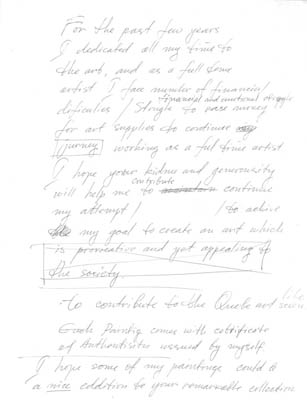 For the past few years
I dedicated all my time to
the art, and as a full time
artist I face number of financial
financial and emotional struggle
dificulies / Stragle to rase money
for art supplies to continue my
journey working as a ful time artist
I hope your kidnes and generousity
contribute
will help me to continue
my attempt / / to achive
my goal to create an art which
is provocative and yet appealing to
the society.
to contribute to the Quote art
Each Painting comes with certificate
of Authentisety issued by myself
I hope some of my paintings could be
a nice addition to your remarkable collection